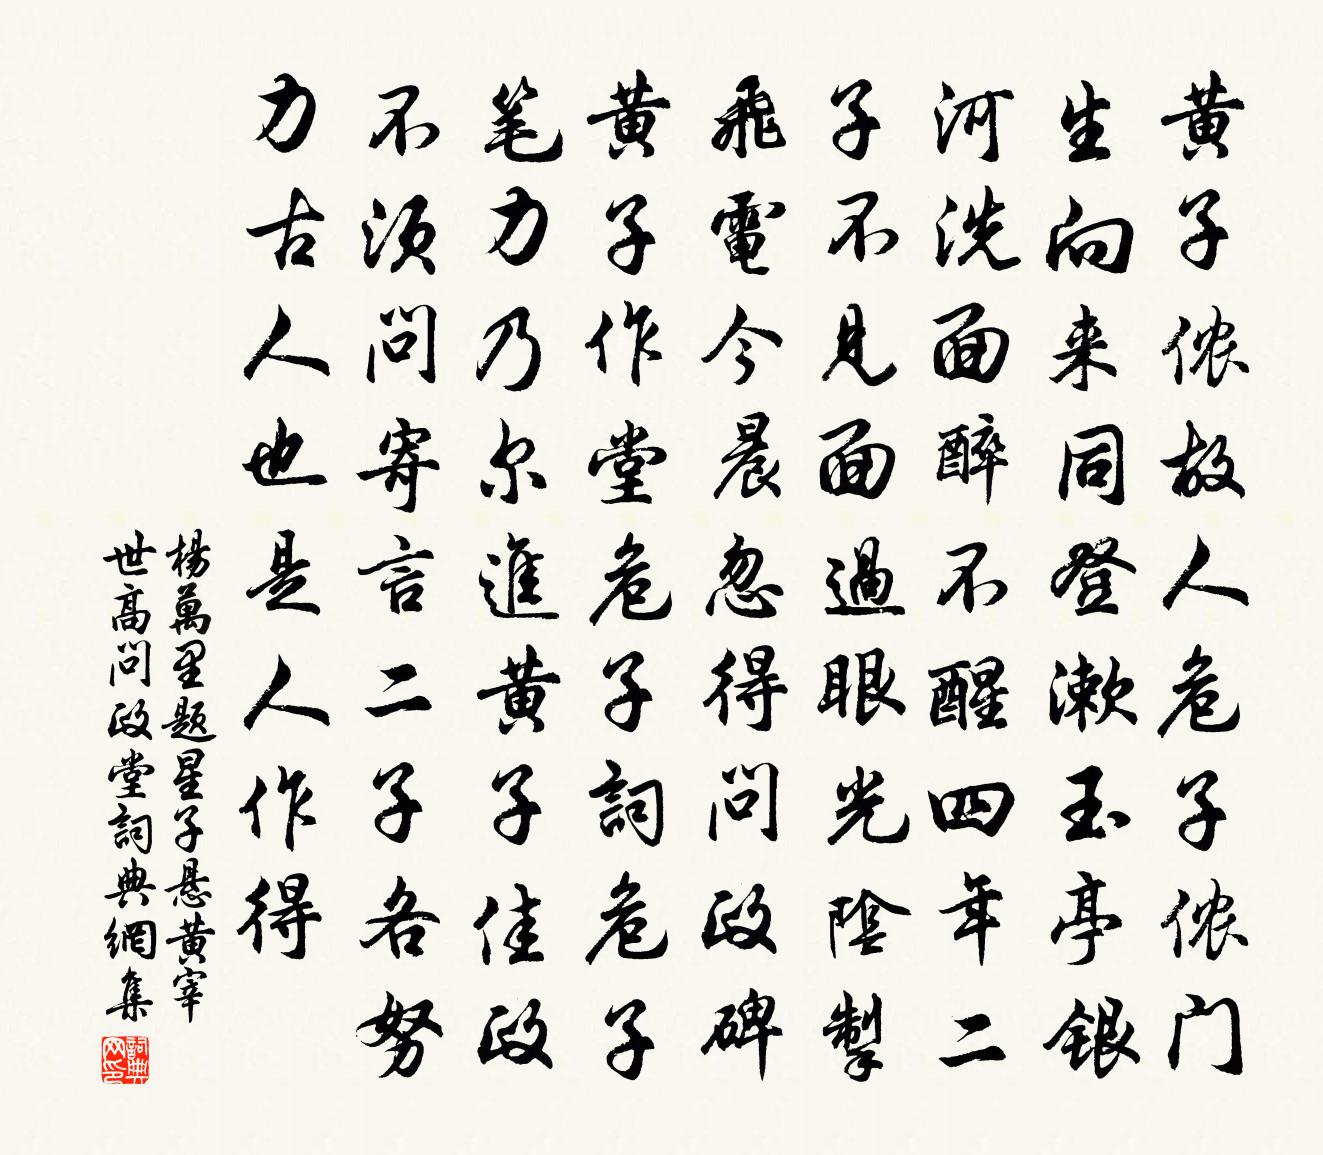 黄子侬故人危子侬门
生向来同登漱玉亭银
河洗面醉不醒四年二
子不见面過眼光陰掣
飛電今晨忽得問政碑
黄子作堂危子詞危子
笔力乃尔進黄子佳政
不须問寄言二子各努
力古人也是人作得
楊萬里题星子悬黄宰
世高問政堂詞典網集
詞典网印